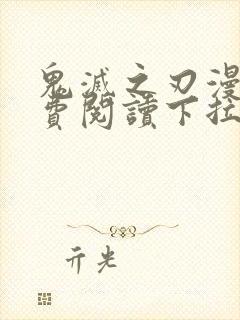 鬼滅之刃漫
費閱讀下拉
亓光